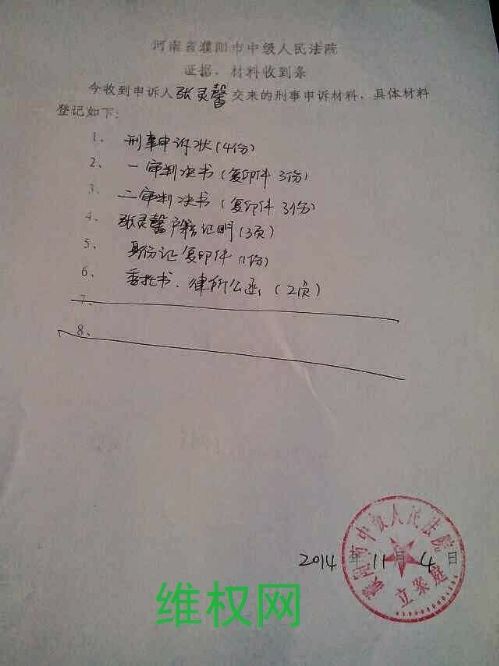 河南省濮阳市中级人民法院
证据、材料收到条
今收到申诉人张灵馨交来的刑事申诉材料、具体材料
登记如下:
1、 刑事申诉状(4份)
2、 一审判决书(复印件3份)
3、 二审判决书(复印件3份)
4、 张灵馨户籍证明(3页)
5、 身份证复印件(1份)
6、 委托书、律所公函(2页)
7、
8、
2014年11月4日
濮阳市中级人民法院
立案庭
维权网